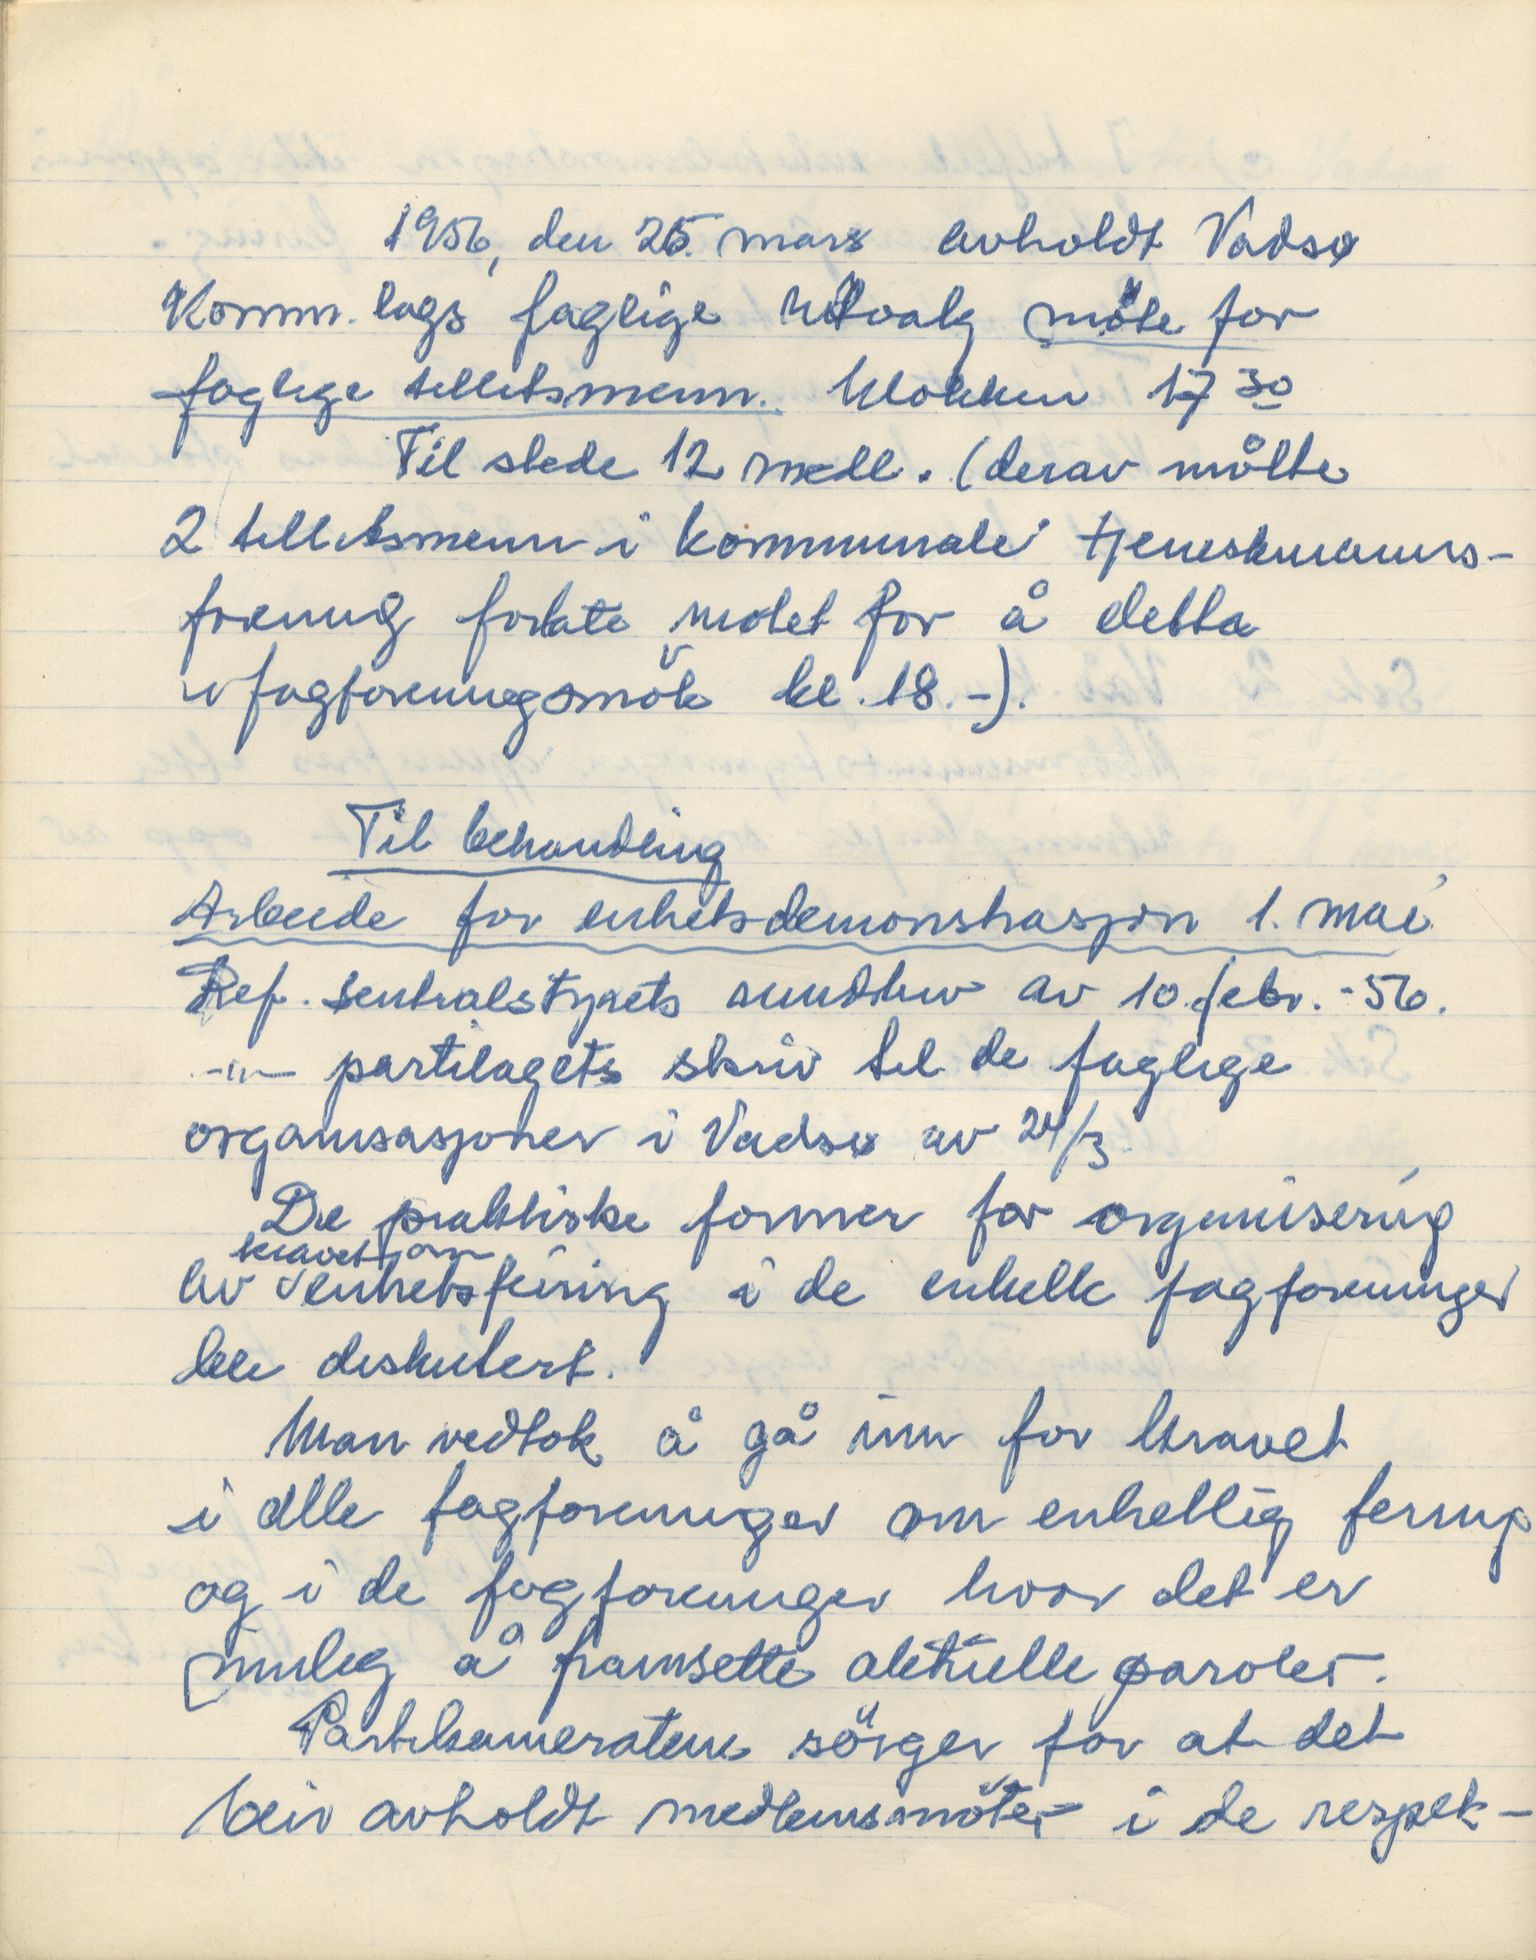 1956, den 25. mars avholdt Vadsø
Komm. lags faglige utvalg möte for
faglige tillitsmenn. Klokken 17 30
Til stede 12 medl. (derav måtte
2 tillitsmenn i kommunale tjenestmanns-
forening forlate møtet for å delta
i fagforeningsmöte kl. 18.-).
Til behandling
Arbeide for enhetsdemonstrasjon 1. mai
Ref. sentralstyrets rundskriv av 10. febr. -56.
-"- partilagets skriv til de faglige
organisasjoner i Vadsø av 24/3
De praktiske former for organisering
kravet om
av enhetsfeiring i de enkelte fagforeninger
ble diskutert.
Man vedtok å gå inn for kravet
i alle fagforeninger om enhetlig feiring
og i de fagforeninger hvor det er
mulig å framsette aktuelle paroler.
Partikameratene sörger for at det
blir avholdt medlemsmöter i de respek-